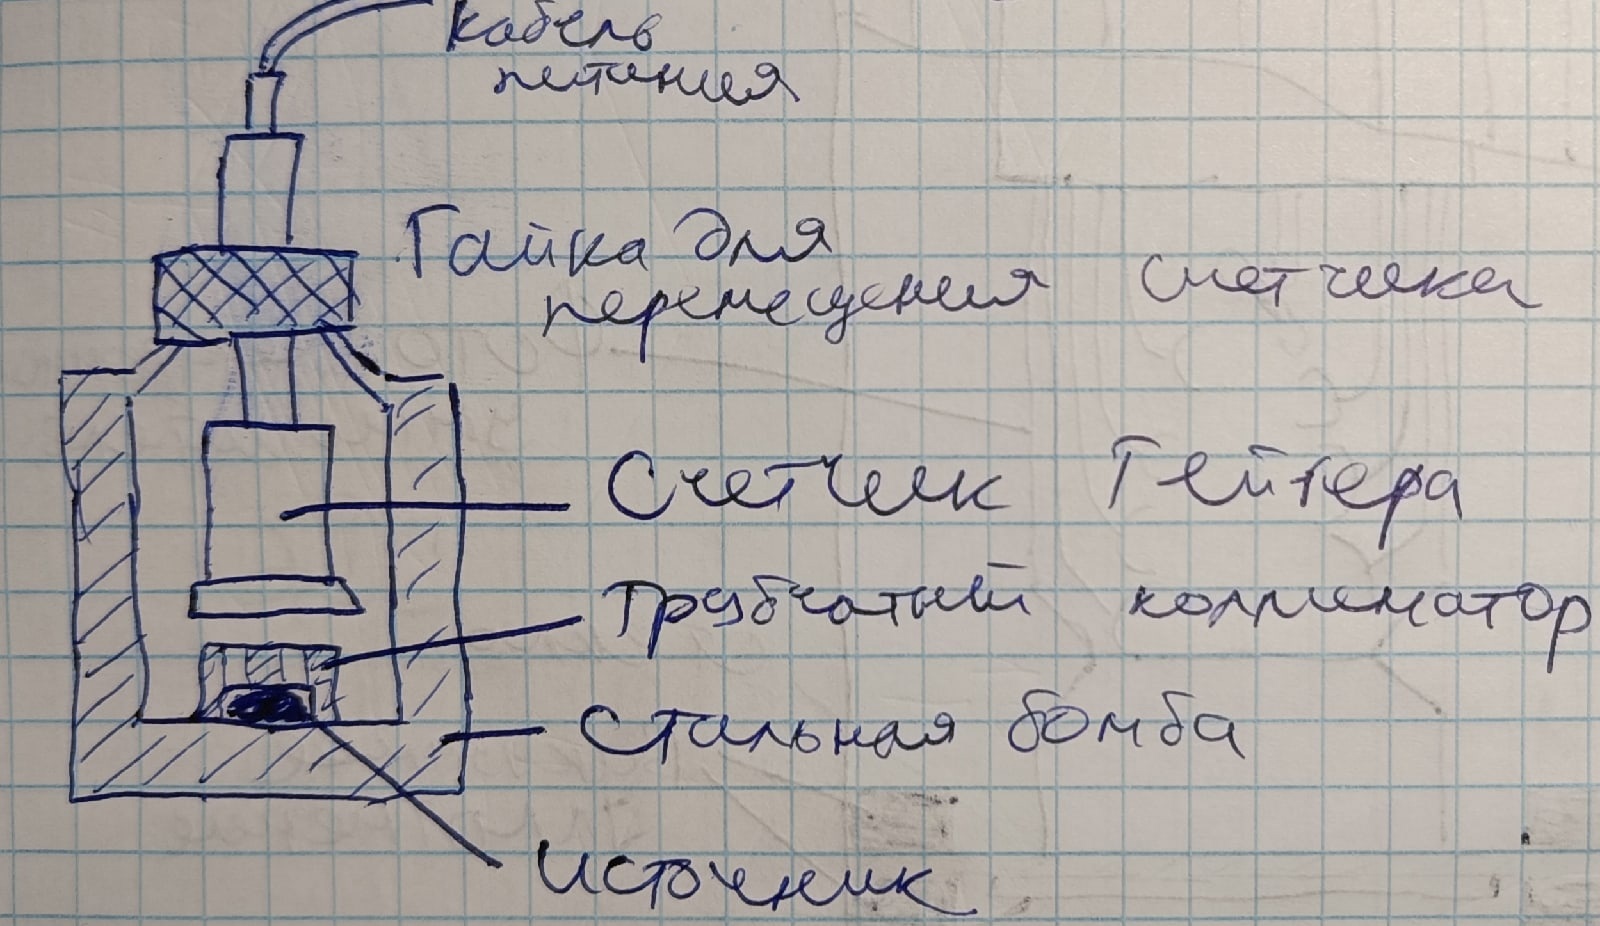 кабель
питания
Гайка для
перемещения счетчика
Счетчик Гейгера
Трубчатый коллиматор
Стальная бомба
Источник